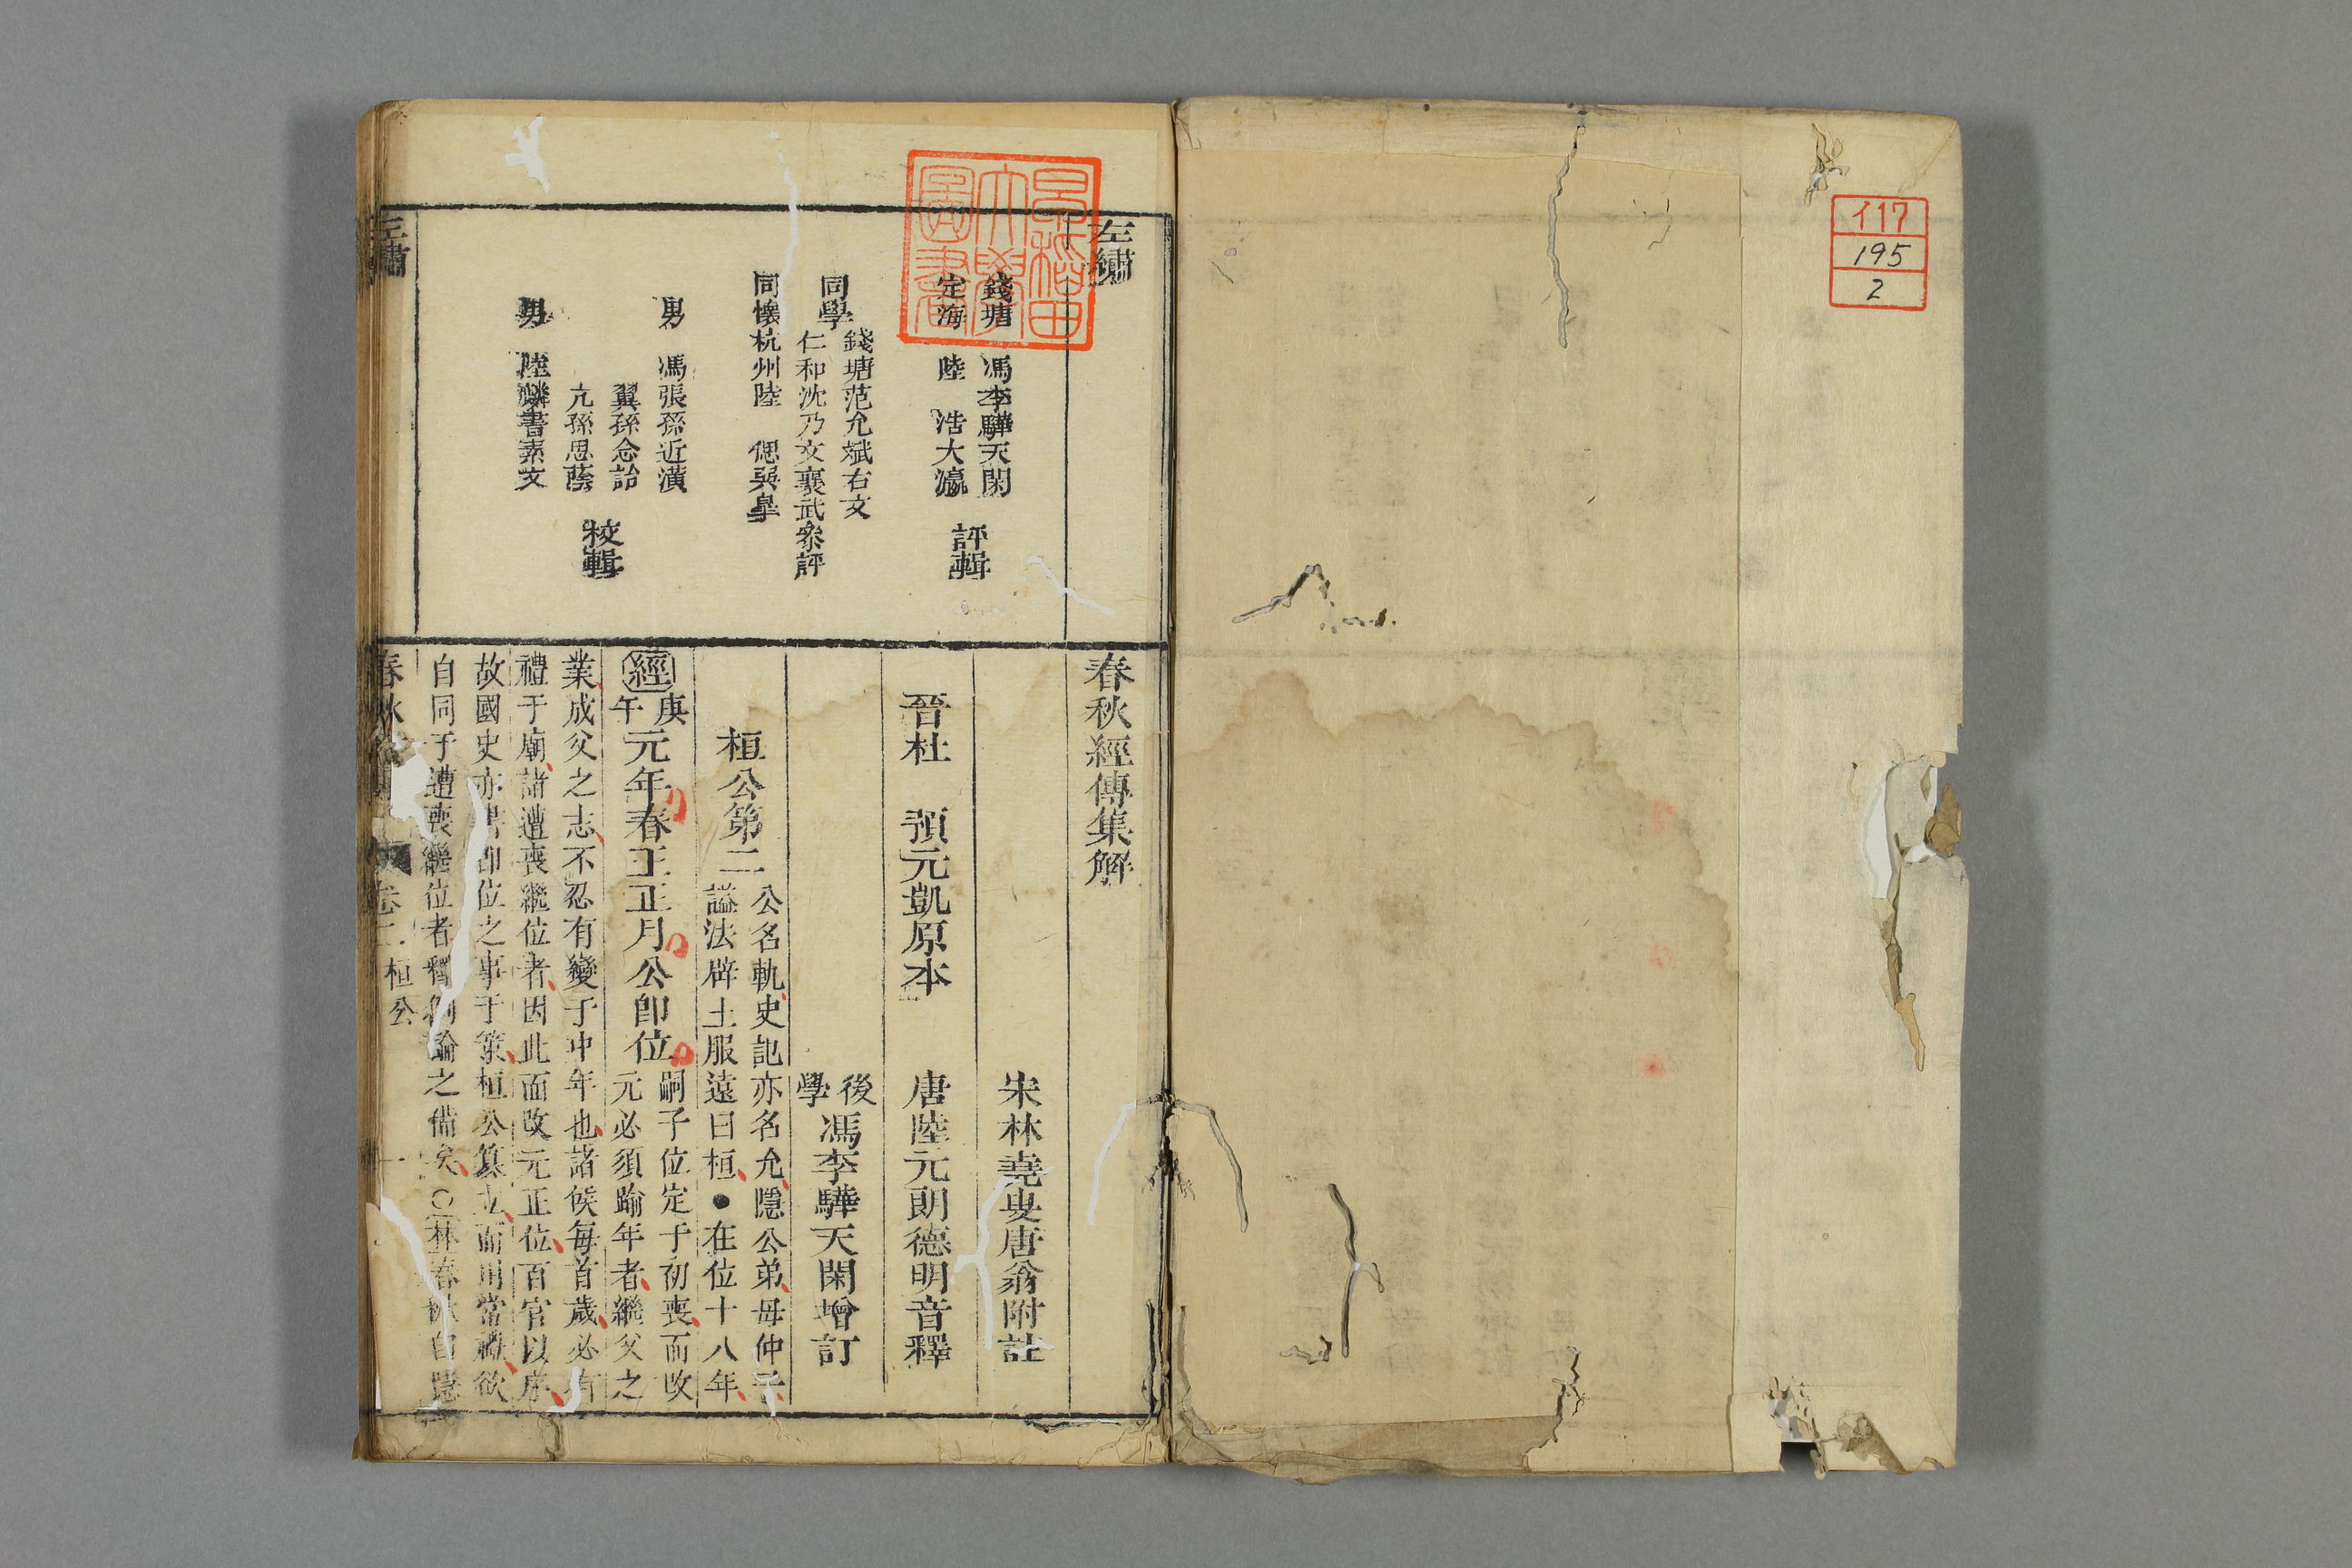 117
195
2
早稲田
大學
圖書
左繡
錢塘 馮李驊天閑
定海 陸 浩大瀛
評輯
同學
錢塘范允斌右文
仁和沈乃文襄武
叅評
同懷杭州陸 偲巽皐
男 馮張孫近潢
翼孫念詒
亢孫思蔭
男 陸麟書素文
校輯
左繡
春秋經傳集解
宋林堯叟唐翁附註
晉杜 預元凱原本 唐陸元朗德明音釋
後學馮李驊天閑增訂
桓公第二
公名軌史記亦名允隱公弟母仲子
謚法辟土服遠曰桓●在位十八年
經庚午元年春王正月公卽位
嗣子位定于初喪而改
元必須踰年者繼父之
業成父之志不忍有變于中年也諸侯每首歲必有
禮于廟諸遭喪繼位者因此而改元正位百官以序
故國史亦書卽位之事于策桓公簒立而用常禮欲
自同于遭喪繼位者釋例論之備矣○林春秋自隱
春秋 卷二 桓公 一